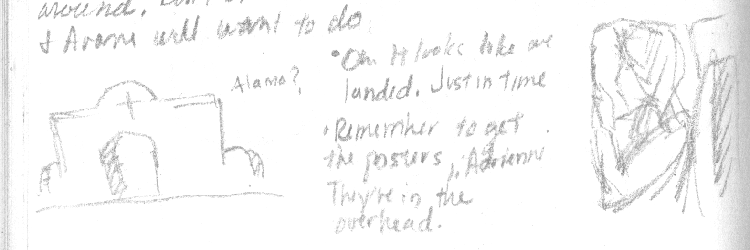 around.
& Avani will want to do
Alamo?
• Oh. It looks like we
landed. Just in time
• Remember to get
the posters, Adrienne
They're in the
overhead.